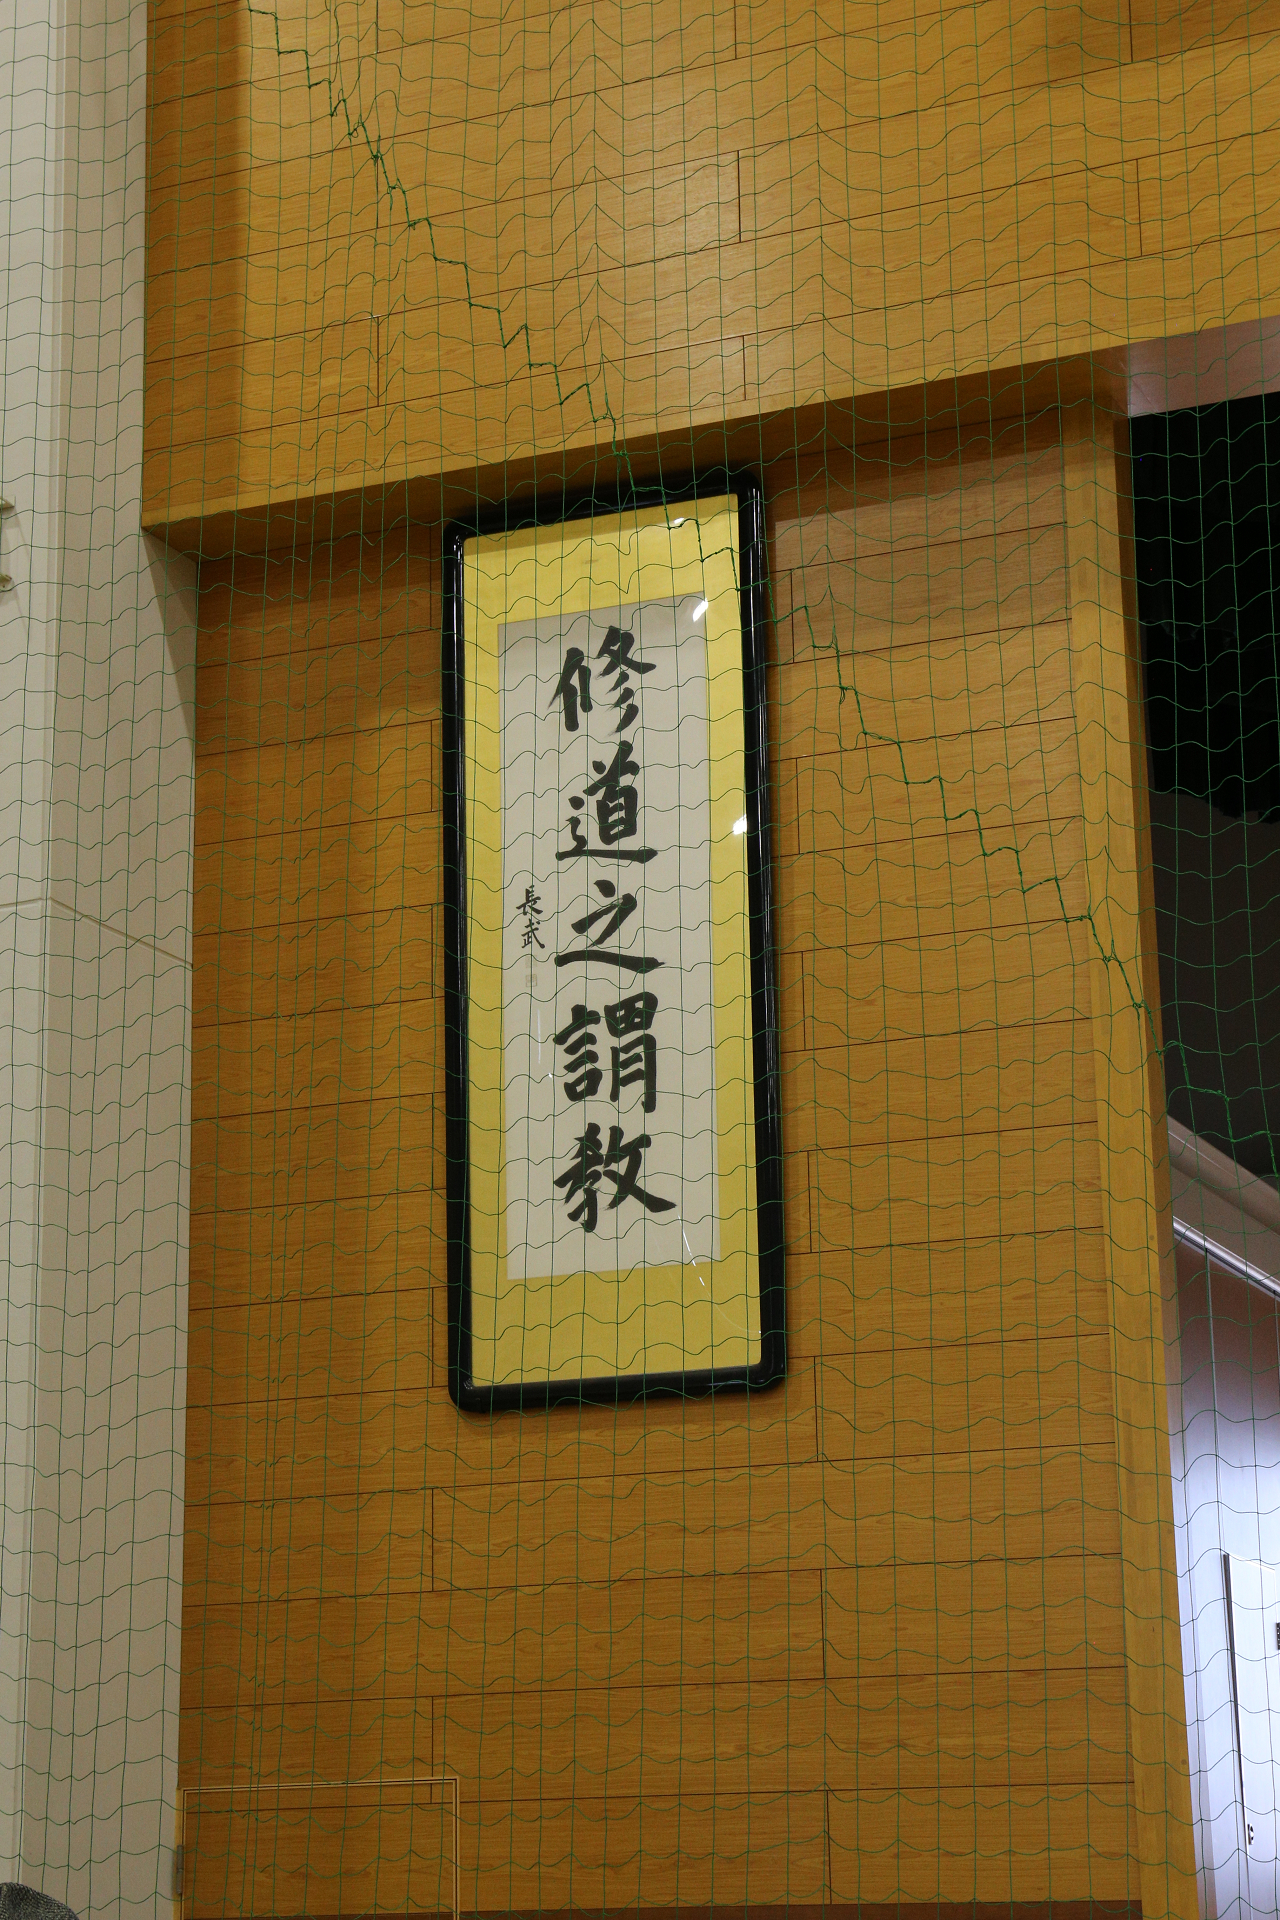 修道之謂教
長武